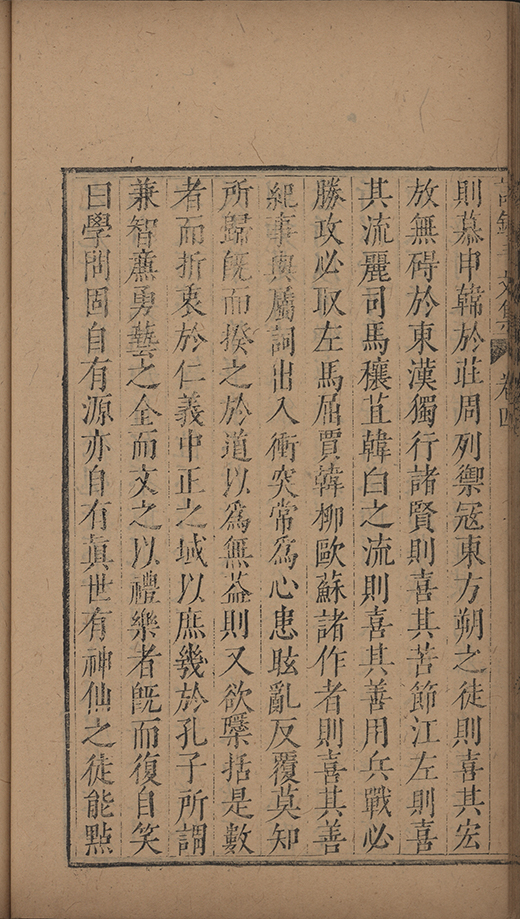 卷四
則慕申韓於莊周列禦冠東方朔之徒則喜其宏
放無碍於東漢獨行諸賢則喜其苦節江左則喜
其流麗司馬穰苴韓白之流則喜其善用兵戰必
勝攻必取左馬屈賈韓柳歐蘇諸作者則喜其善
紀事與屬詞出入衝突常為心患眩亂反覆莫知
所歸旣而揆之於道以為無益則又欲檃括是數
者而折衷於仁義中正之域以庶幾於孔子所謂
兼智廉勇藝之全而文之以禮樂者旣而復自笑
曰學問固自有源亦自有眞世有神仙之徒能點